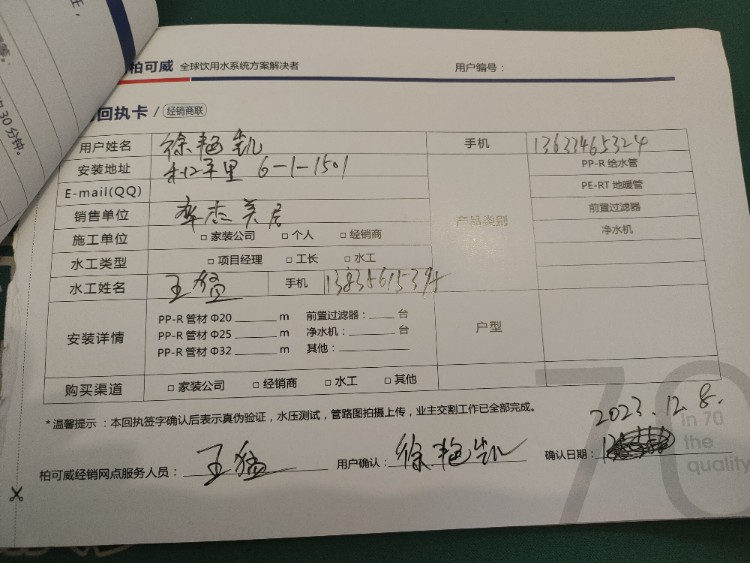 柏可威 全球饮用水系统方案解决者 用户编号：
回执卡 / 经销商联
用户姓名 徐艳凯 手机 13633465324
安装地址 和平里 6-1-1501 PP-R 给水管
E-mail(QQ) PE-RT 地暖管
销售单位 美居 产品类别 前置过滤器
施工单位 □ 家装公司 □ 个人 □ 经销商 净水机
水工类型 □ 项目经理 □ 工长 □ 水工
水工姓名 王猛 手机
安装详情 PP-R 管材 Φ20 ______ m 前置过滤器：____ 台 户型
PP-R 管材 Φ25 ______ m 净水机：____ 台
PP-R 管材 Φ32 ______ m 其他：______
购买渠道 □ 家装公司 □ 经销商 □ 水工 □ 其他
*温馨提示：本回执签字确认后表示真伪验证，水压测试，管路图拍摄上传，业主交割工作已全部完成。
2023.12.8.
柏可威经销网点服务人员：王猛 用户确认：徐艳凯 确认日期：
70
in 70
the
quality
30 分钟。